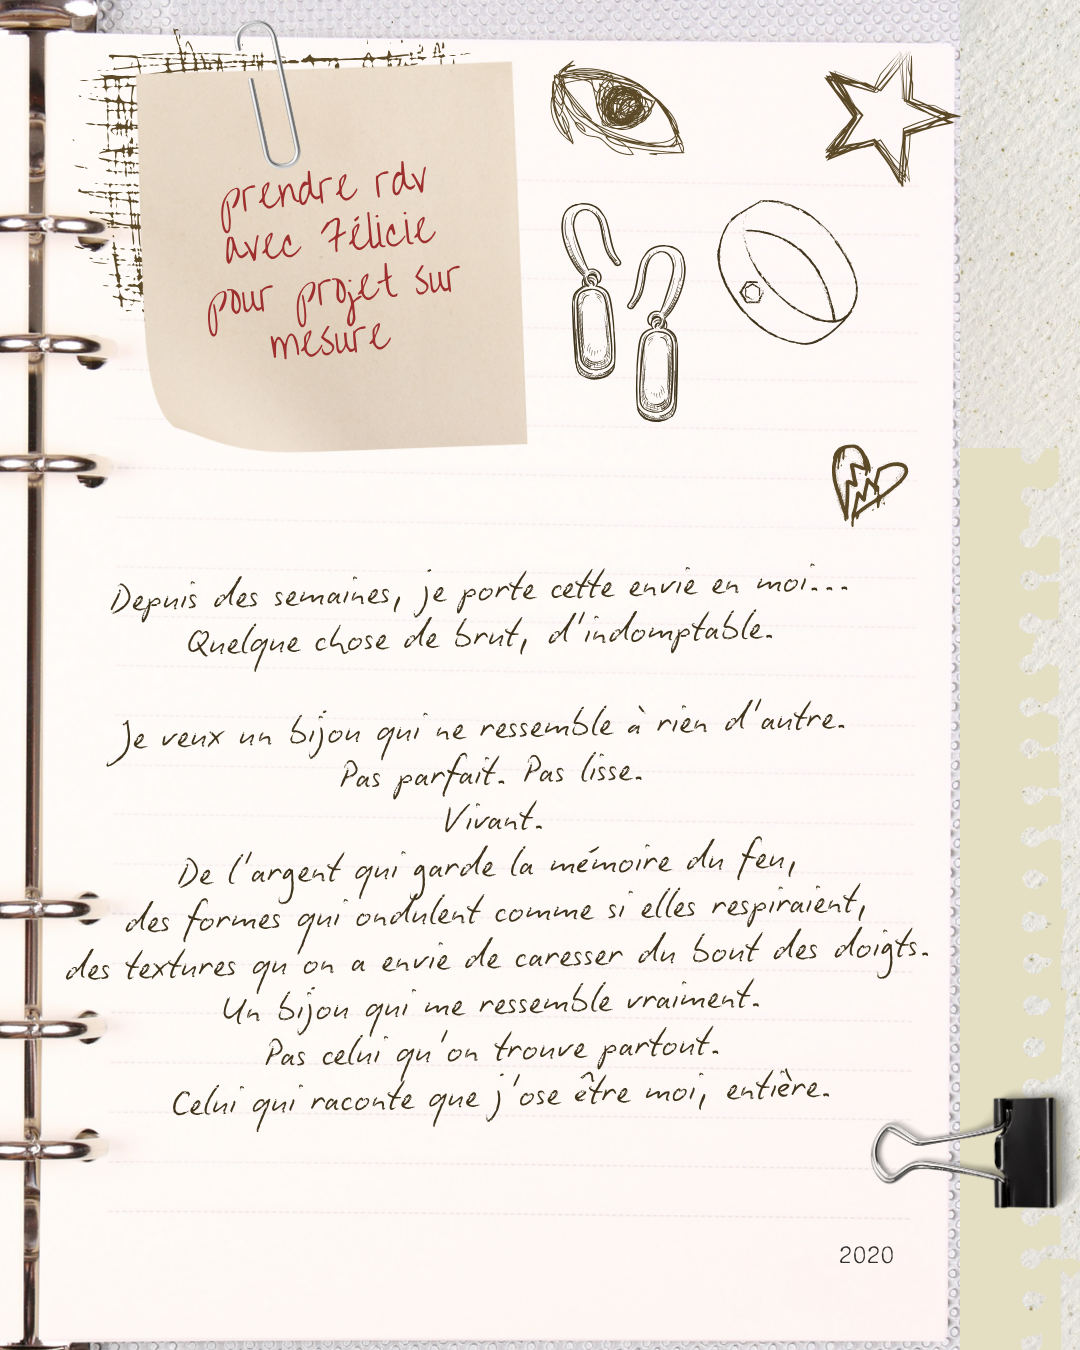 prendre rdv
avec Félicie
pour projet sur
mesure
Depuis des semaines, je porte cette envie en moi...
Quelque chose de brut, d'indomptable.
Je veux un bijou qui ne ressemble à rien d'autre.
Pas parfait. Pas lisse.
Vivant.
De l'argent qui garde la mémoire du feu,
des formes qui ondulent comme si elles respiraient,
des textures qu'on a envie de caresser du bout des doigts.
Un bijou qui me ressemble vraiment.
Pas celui qu'on trouve partout.
Celui qui raconte que j'ose être moi, entière.
2020